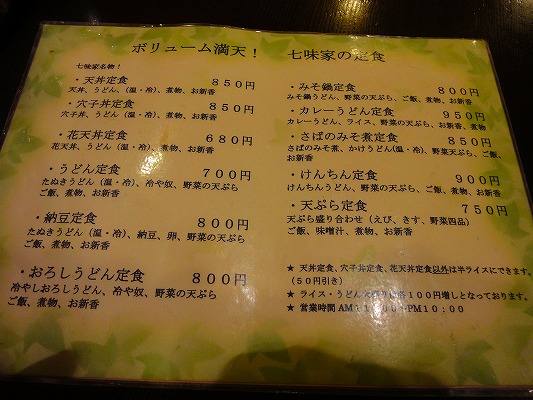 ボリューム満天! 七味家の定食
七味家名物!
・天丼定食 850円
天丼、うどん、(温・冷)、煮物、お新香
・穴子丼定食 850円
穴子丼、うどん、(温・冷)、煮物、お新香
・花天丼定食 680円
花天丼、うどん、(温・冷)、煮物、お新香
・うどん定食 700円
たぬきうどん(温・冷)、冷や奴、野菜の天ぷら
ご飯、煮物、お新香
・納豆定食 800円
たぬきうどん(温・冷)、納豆、卵、野菜の天ぷら
ご飯、煮物、お新香
・おろしうどん定食 800円
冷やしおろしうどん、冷や奴、野菜の天ぷら
ご飯、煮物、お新香
・みそ鍋定食 800円
みそ鍋うどん、野菜の天ぷら、ご飯、煮物、お新香
・カレーうどん定食 950円
カレーうどん、ライス、野菜の天ぷら、お新香、煮物
・さばのみそ煮定食 850円
さばのみそ煮、かけうどん(温・冷)、野菜天ぷら、ご飯、
お新香
・けんちん定食 900円
けんちんうどん、野菜の天ぷら、ご飯、煮物、お新香
・天ぷら定食 750円
天ぷら盛り合わせ(えび、きす、野菜四品)
ご飯、味噌汁、煮物、お新香
★ 天丼定食、穴子丼定食、花天丼定食以外は半ライスにできます。
(50円引き)
★ ライス・うどん は各100円増しとなっております。
★ 営業時間 AM ~PM10:00